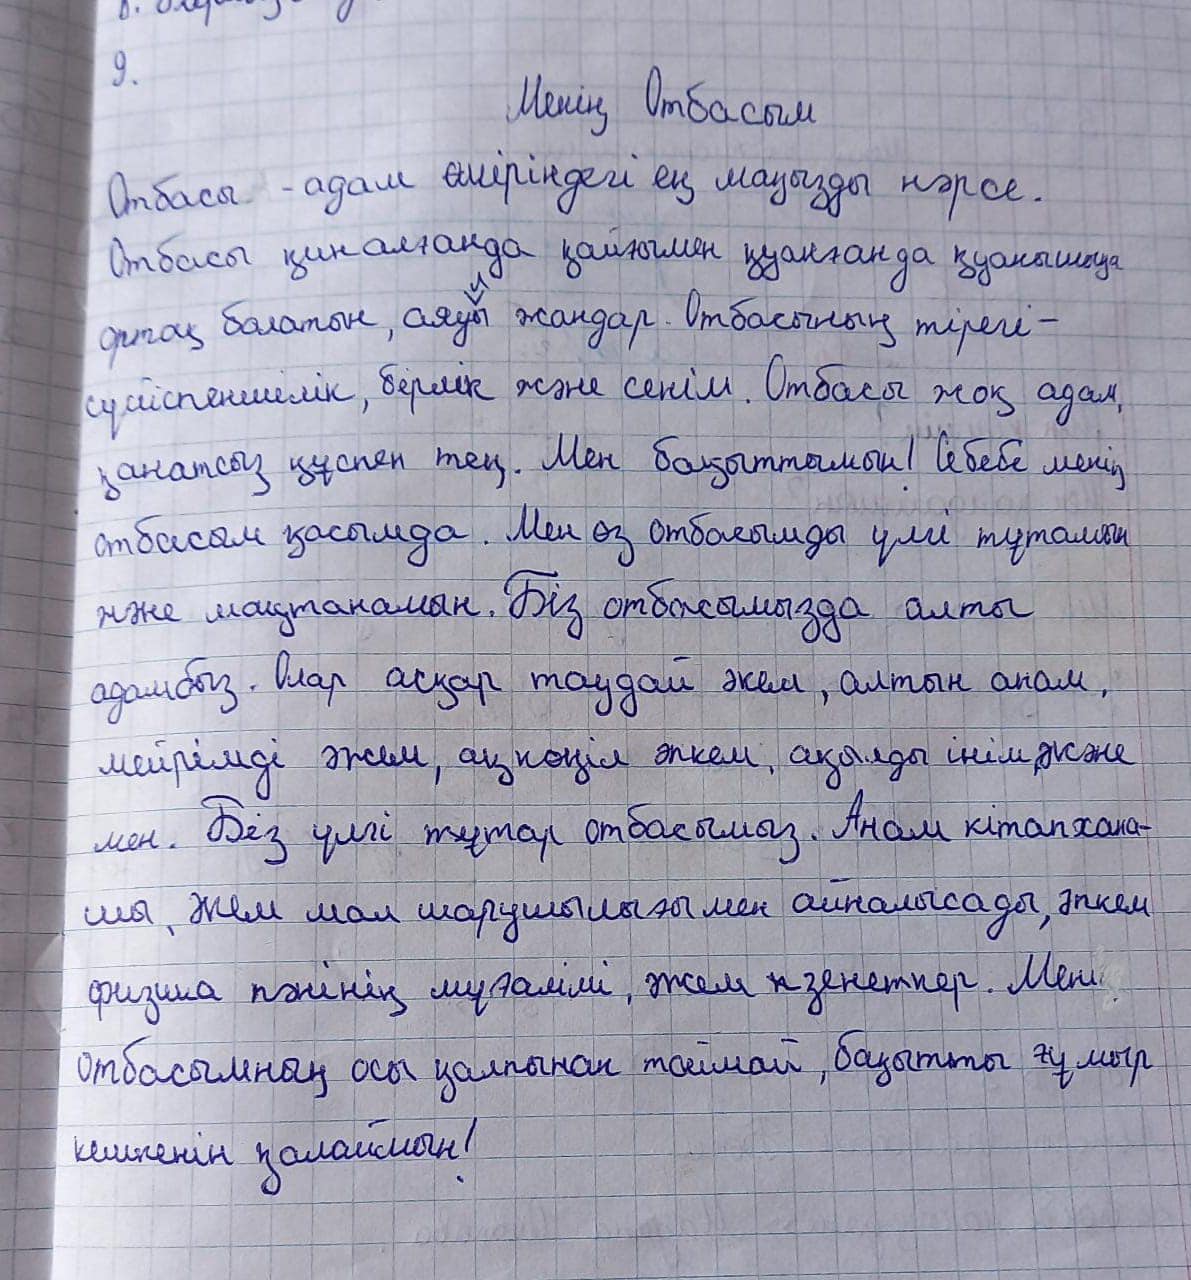 9.
Менің Отбасым
Отбасы - адам өміріндегі ең маңызды нәрсе.
Отбасы қиналғанда қайғымен қуанғанда қуанышқа
ортақ болатын, аяулы жандар. Отбасының тірегі -
сүйіспеншілік, бірлік және сенім. Отбасы жоқ адам,
қанатсыз құспен тең. Мен бақыттымын! Себебі менің
отбасым қасымда. Мен өз отбасымды үлгі тұтамын
және мақтанамын. Біз отбасымызда алты
адамбыз. Олар асқар таудай әкем, алтын анам,
мейірімді әжем, ақкөңіл әпкем, ақылды інім және
мен. Біз үлгі тұтар отбасымыз. Анам кітапхана-
шы, әкем мал шаруашылығымен айналысады, әпкем
физика пәнінің мұғалімі, әжем зейнеткер.
отбасымның осы қалпынан таймай, бақытты ғұмыр
кешкенін қалаймын!